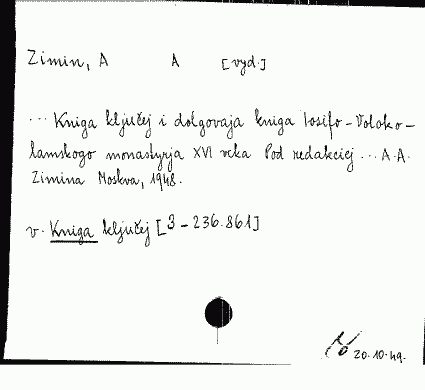 Zimin, A A [vyd.]
... Kniga ključej i dolgovaja kniga Iosifo-Voloko-
lamskogo monastyrja XVI veka Pod redakciej ... A.A.
Zimina Moskva, 1948.
v. Kniga ključej [3-236.861]
20.10.49.